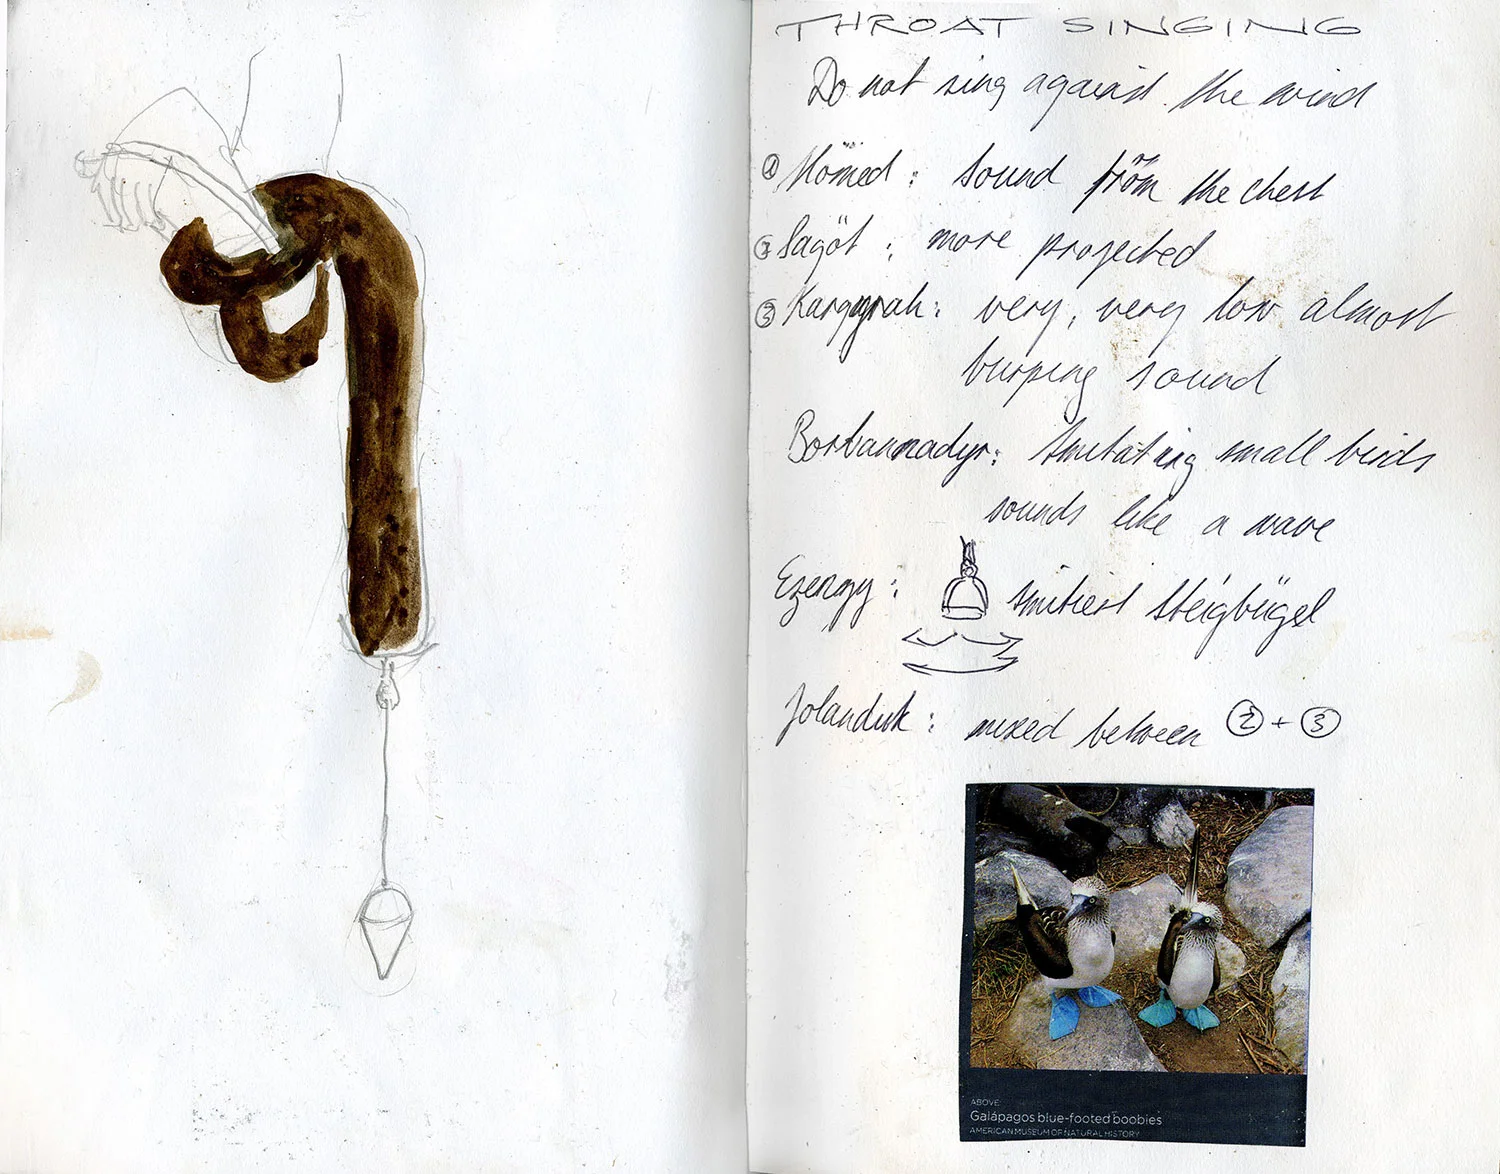 THROAT SINGING
Do not sing against the wind
① Hömed: sound from the chest
② Sagöt: more projected
③ Kargyrah: very, very low almost
burping sound
Borbannadyr: Imitating small birds
sounds like a wave
Ezengy: Imitiert Steigbügel
Jolanduk: mixed between ② + ③
ABOVE:
Galápagos blue-footed boobies
AMERICAN MUSEUM OF NATURAL HISTORY